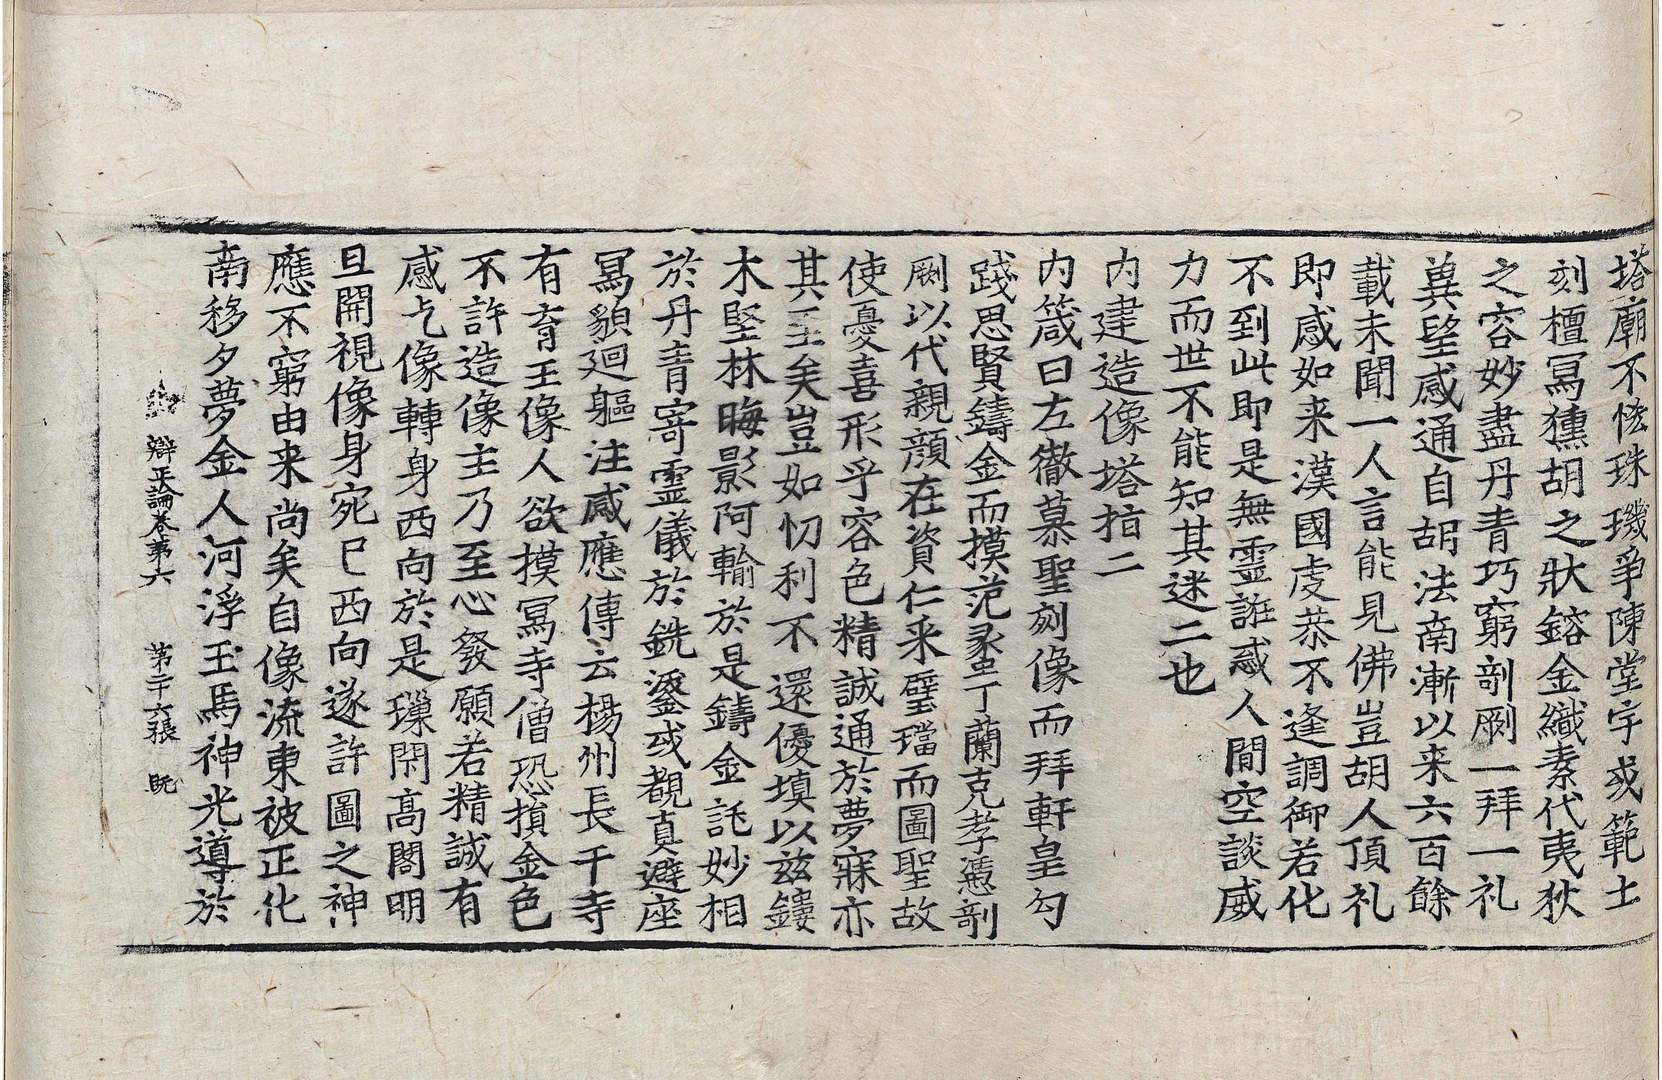 塔廟不恡珠璣爭陳堂宇或範土
刻檀冩獯胡之狀鎔金織素代夷狄
之容妙盡丹青巧窮剞劂一拜一礼
兾望感通自胡法南漸以来六百餘
載未聞一人言能見佛豈胡人頂礼
即感如来漢國虔恭不逢調御若化
不到此即是無靈誑惑人間空談威
力而世不能知其迷二也
内建造像塔指二
内箴曰左徹慕聖刻像而拜軒皇勾
踐思賢鑄金而摸范蠡丁蘭克孝憑剞
劂以代親顔在資仁釆璧璫而圖聖故
使憂喜形乎容色精誠通於夢寐亦
其至矣豈如忉利不還優填以兹鏤
木堅林晦影阿輸於是鑄金託妙相
於丹青寄靈儀於銑鎏或覩真避座
冩貌廻軀注感應傳云楊州長干寺
有育王像人欲摸冩寺僧恐損金色
不許造像主乃至心發願若精誠有
感乞像轉身西向於是璅閇高閣明
旦開視像身宛已西向遂許圖之神
應不窮由来尚矣自像流東被正化
南移夕夢金人河浮玉馬神光導於
辯正論卷第六　第二十六張　旣